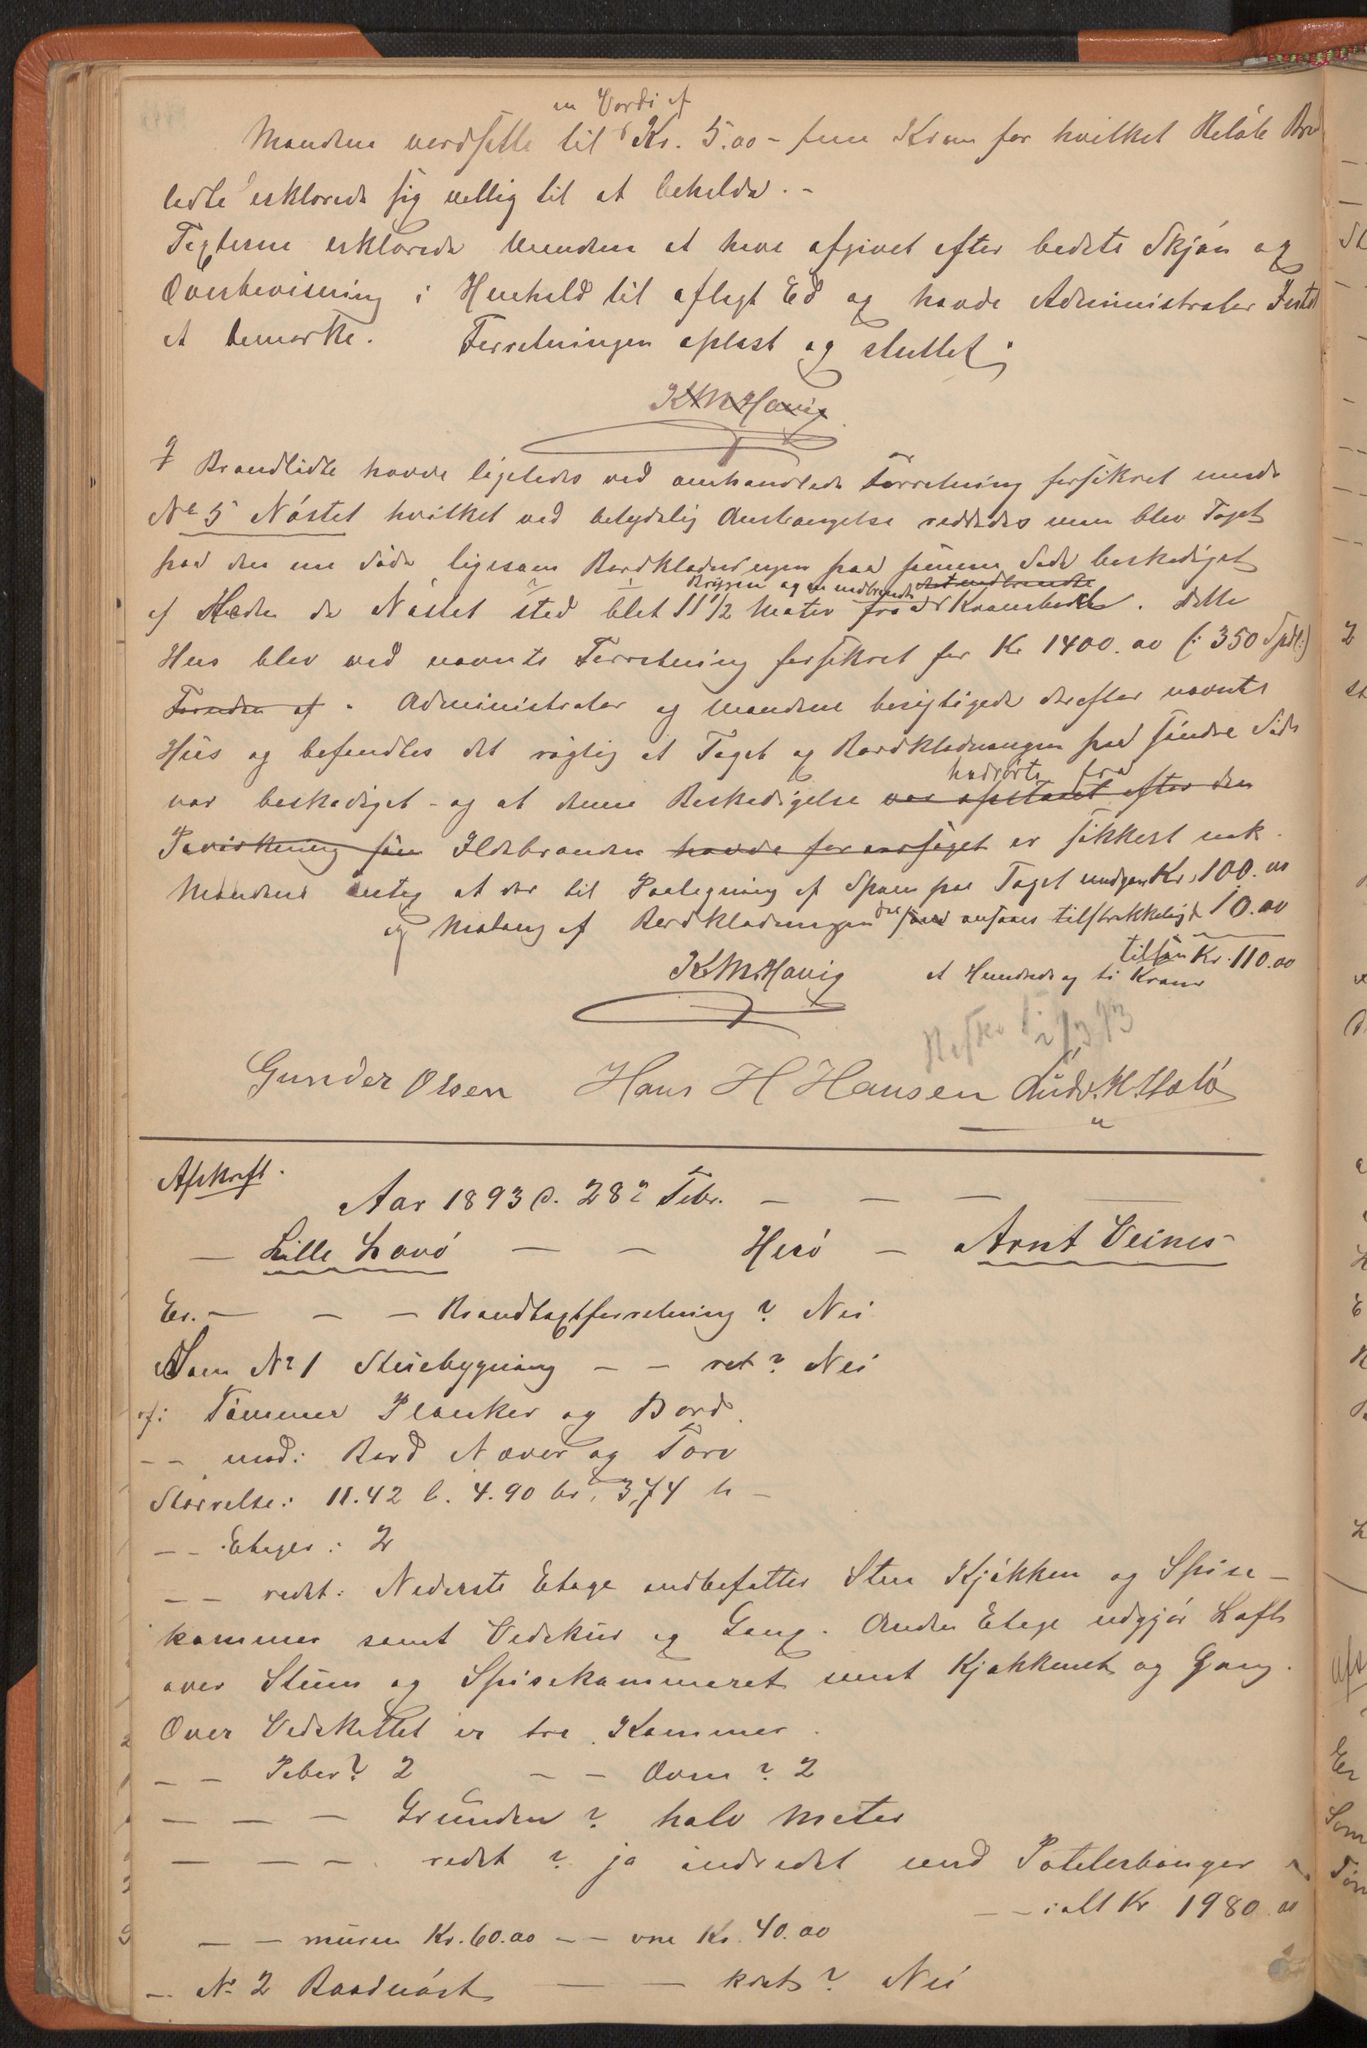 en Værdi af
Mændene verdsatte til Kr. 5.00 - fem Kroner for hvilket Beløb Brand
lidte erklærede sig villig til at beholde. -
Taxterne erklærede Mændene at have afgivet efter bedste Skjøn og
Overbevisning i Henhold til aflagt Ed og havde Administrator Intet
at bemærke. Forretningen oplæst og sluttet.
K M Havig
Brandlidte havde ligeledes ved omhandlede Forretning forsikret under
No 5 Nøstet hvilket ved betydelig Anstrængelse reddedes men blev Taget
paa den ene Side ligesom Bordklædningen paa samme Side beskadiget
Bryggen og den nedbrændte det nedbrændte
af Heden da Nøstet stod blot 11 1/2 Meter fra Krambod. Dette
Hus blev ved nævnte Forretning forsikret for Kr 1400.00 (: 350 Spdl:)
af . Administrator og Mændene besigtigede derefter nævnte
Hus og befandtes det rigtig at Taget og Bordklædningen paa søndre Side
hidrørte fra
var beskadiget - og at denne Beskadigelse var opstaaet efter den
Paavirkning som Ildebranden havde foraarsaget er sikkert nok.
Mændene antog at der til Paalægning af Spaan paa Taget medgaar Kr. 100.00
og Maling af Bordklædningen ansaaes tilstrækkelig 10.00
tilsam Kr. 110.00
K M Havig et Hundrede og ti Kroner
2/3 93
Gunder Olsen Hans H Hansen Andr. H. Halø
Afskrift.
Aar 1893 d. 28? Febr. — — —
— Lille Havø — — Herø — Arnt Veines
Er. — — — Brandtaxtforretning? Nei
Som No 1 Stuebygning — — ret? Nei
af: Tømmer Planker og Bord.
— — med: Bord Næver og Torv
Størrelse: 11.42 l. 4.90 br. 3,74 h —
— — Etager: 2
— — redet: Nederste Etage indbefatter Stue Kjøkken og Spise-
kammer samt Vedskur og Gang. Anden Etage udgjør Loft
over Stuen og Spisekammeret samt Kjøkkenet og Gang.
Over Vedskullet er tre Kammer.
— — Piber? 2 — — Ovne? 2
— — — Grunden? halv Meter
— — — redet? ja indredet med
— — ialt Kr 1980.00
— — muren Kr. 60.00 — — vne Kr. 40.00
— No 2 Baadnøst — — kret? Nei